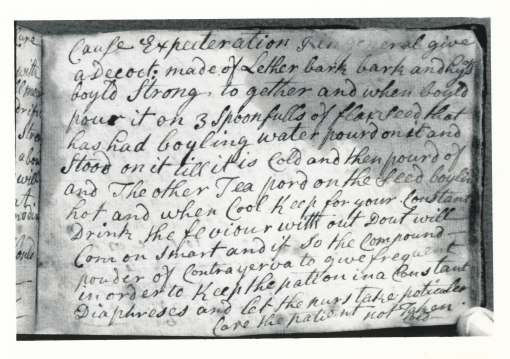 Cause Expecteration I in general give
a Decoct: made of Lether bark bark and
boyld Strong to gether and when boyld
pour it on 3 Spoonfulls of flaxseed that
has had boyling water pourd on it and
Stood on it till it is Cold and then pourd of
and The other Tea pord on the Seed boylin
hot and when Cool Keep for your Constant
Drink the feviour with out Dout will
Com on Smart and if So the Compound
pouder of Contrayerva to give frequent
in order to Keep the patient in a Constant
Diaphreses and let the nurs take peticuler
Care the patient not Taken